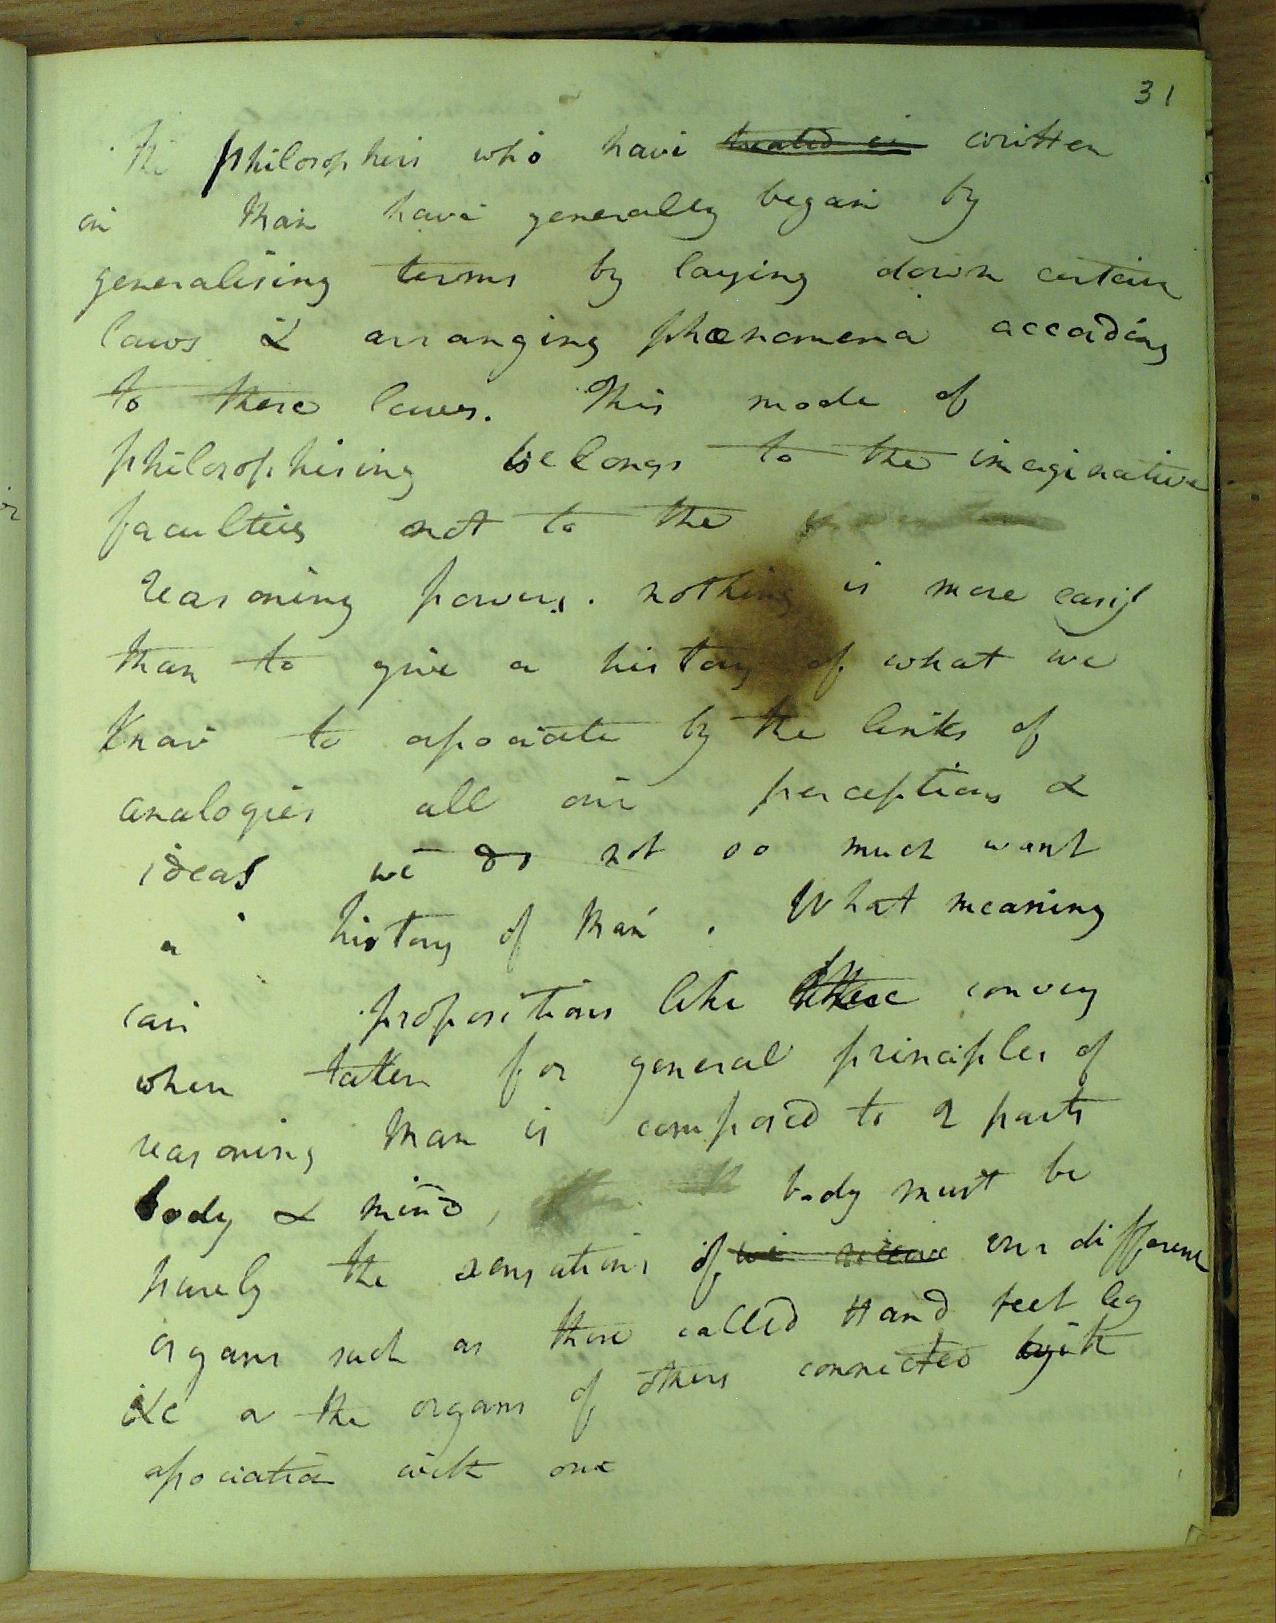 31
The philosophers who have treated on written
on Man have generally began by
generalising terms by laying down certain
laws & arranging phænomena according
to these laws. This mode of
philosophising belongs to the imaginative
faculties not to the
reasoning powers. nothing is more easy
than to give a history of what we
know to associate by the links of
analogies all our perceptions &
ideas we do not so much want
a history of Man. What meaning
can propositions like these convey
when taken for general principles of
reasoning Man is composed to 2 parts
body & mind, body must be
purely the sensations of we receive our different
organs such as those called Hand feet leg
&c or the organs of others connected
association with our